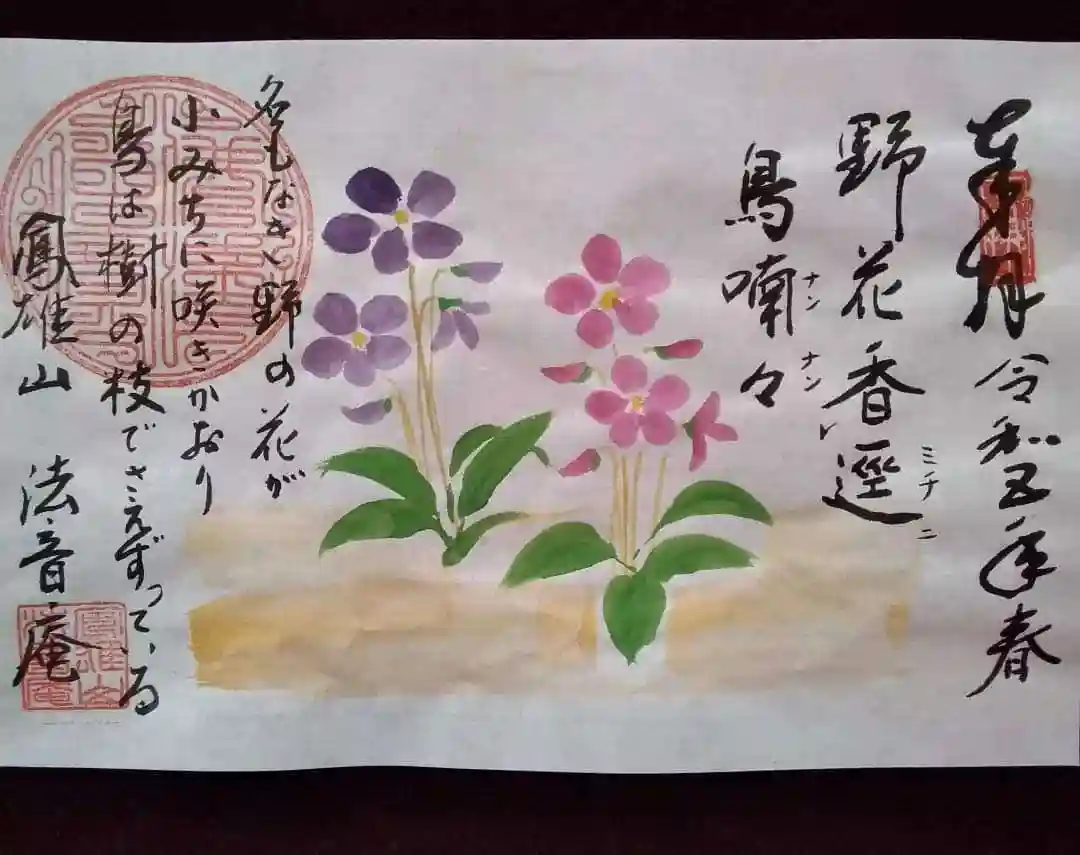 奉拝 令和五年春
野花香逕ミチニ
鳥喃々ナンナン
名もなき野の花が
小みちに咲きかおり
鳥は樹の枝でさえずっている
鳳雄山 法音庵